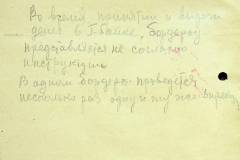 Во время принятия и выдачи
денег в Г. банке, бордеро
представляется не согласно
инструкции
В одном бордеро проведется
несколько раз одну и ту же